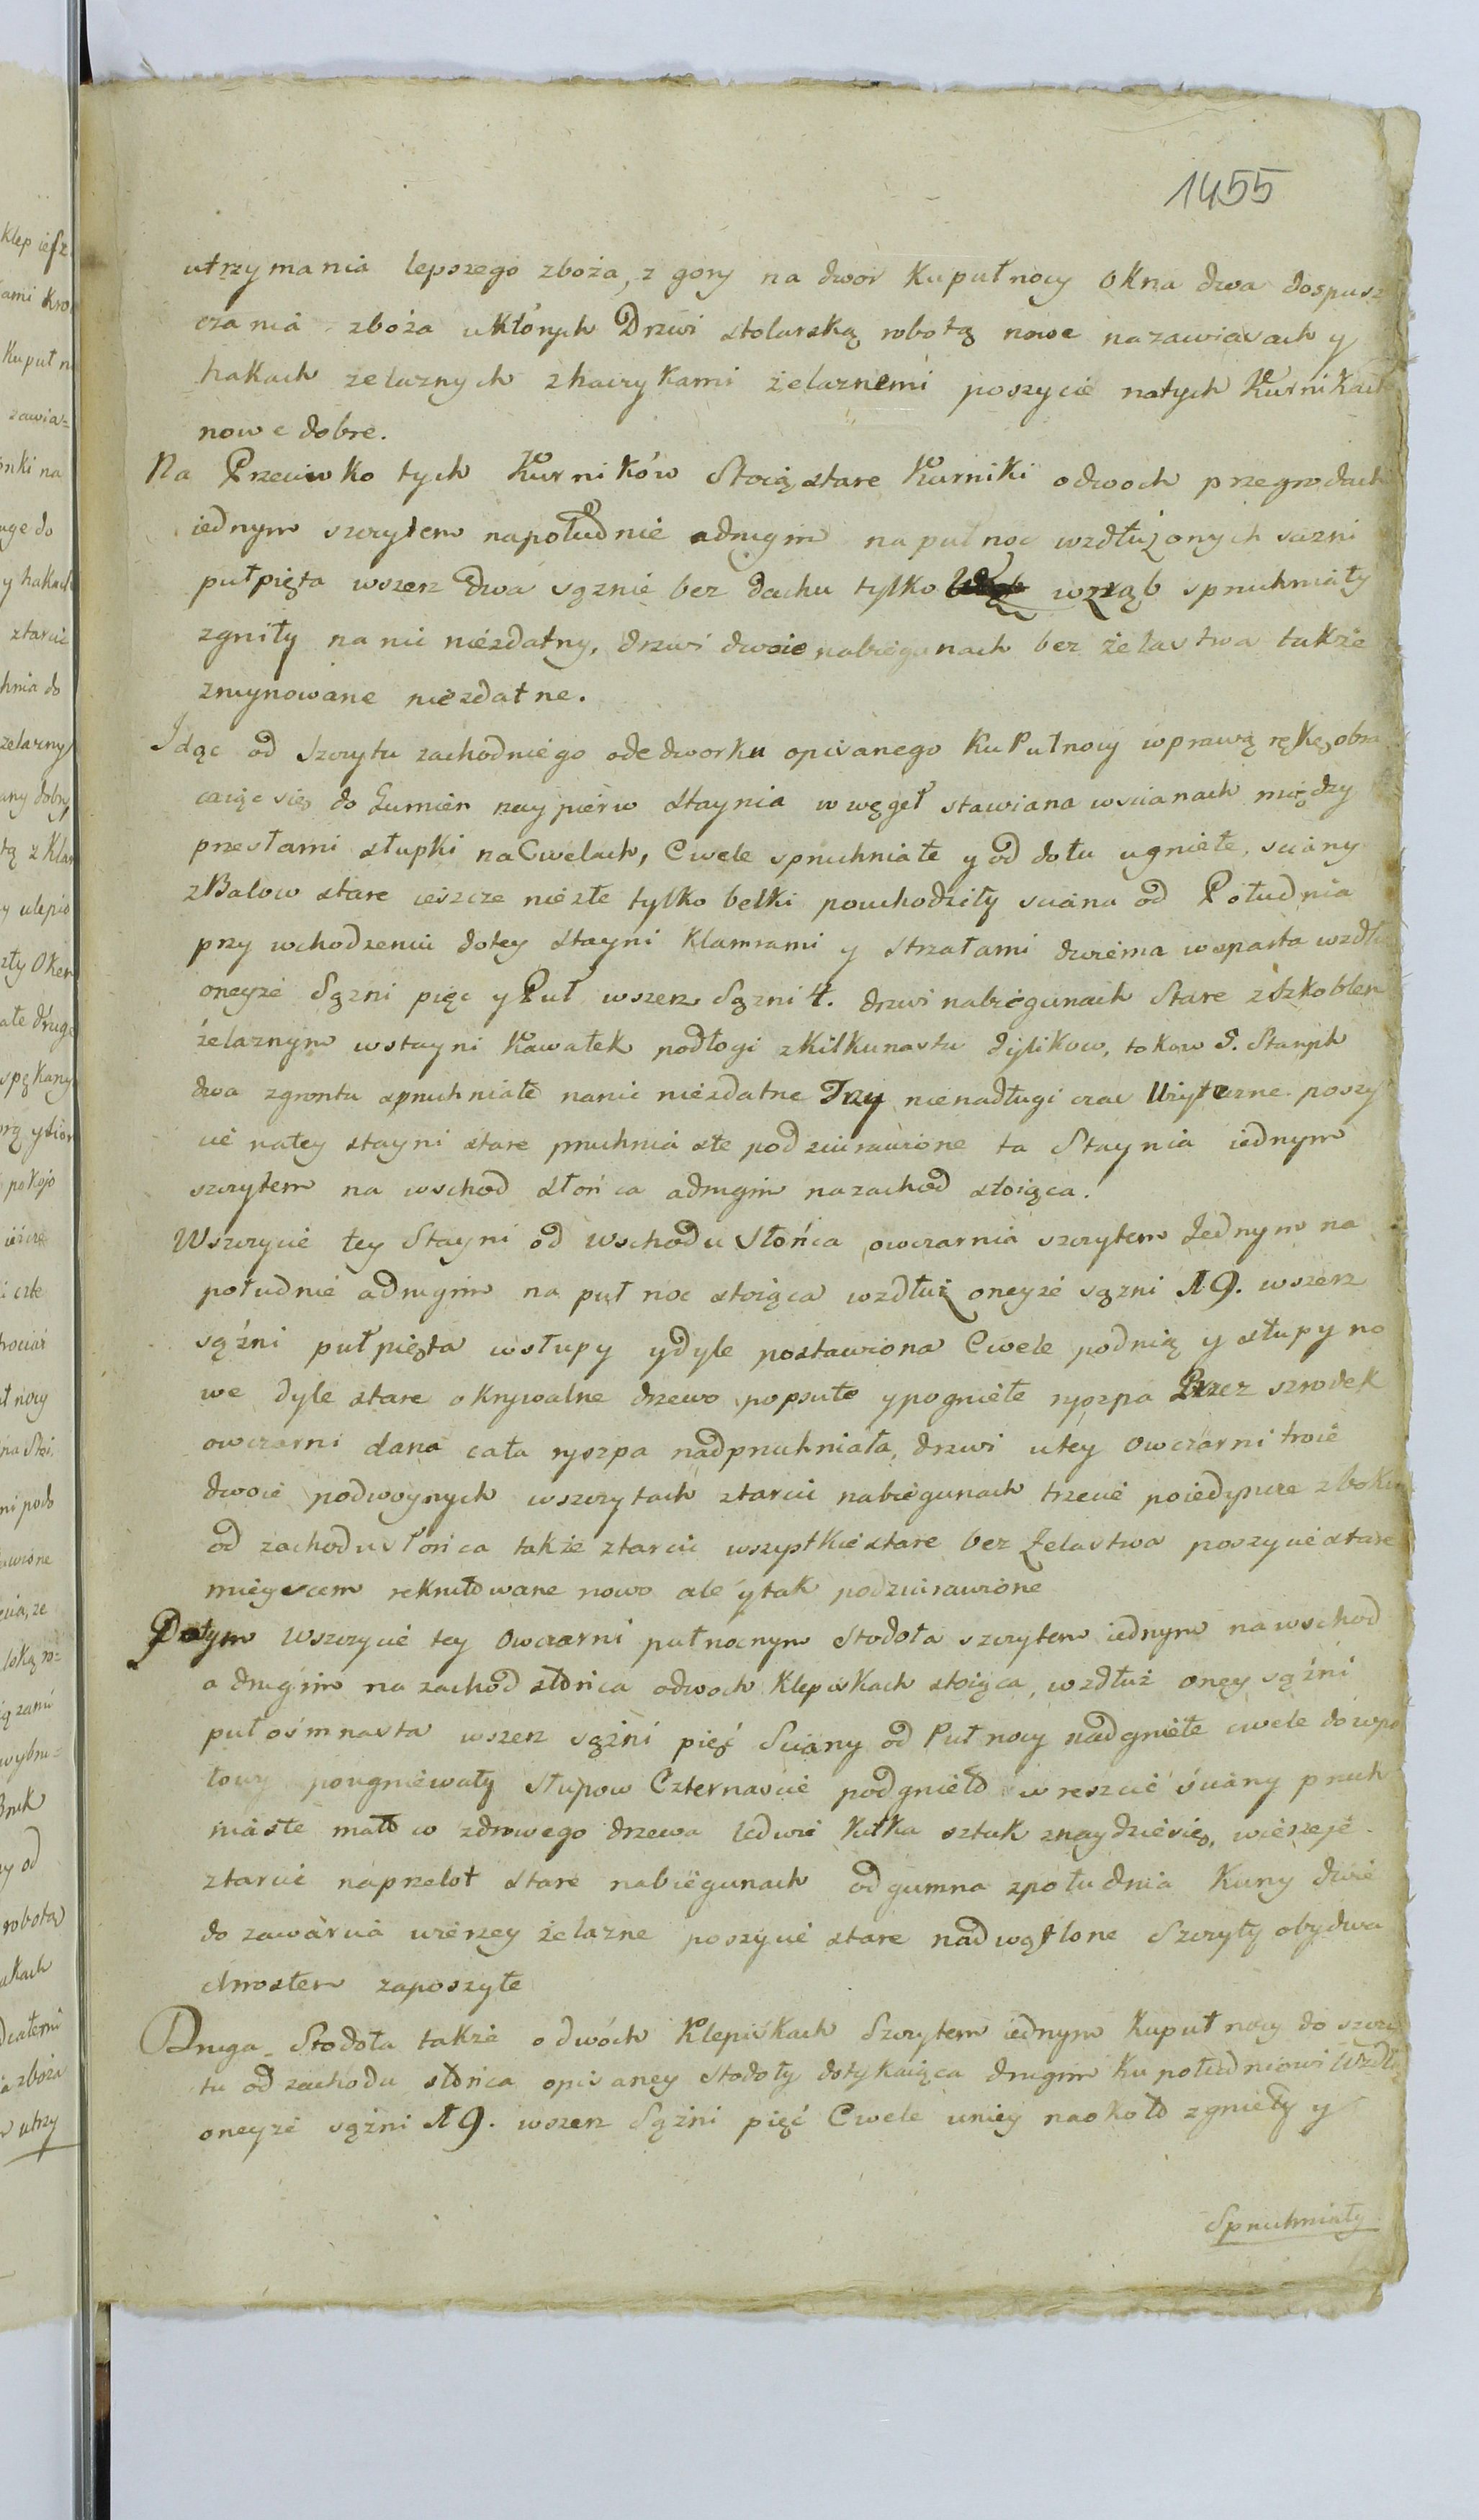 1455
utrzymania lepszego zboża, z gory na dwor Kupułnocy Okna dwa dospusz
czania zboża uktórych Drzwi stolarską robotą nowe nazawiasach y
hakach zelaznych zhaczykami żelaznemi poszycie natych Kurnikach
nowe dobre.
Na Przeciwko tych Kurników Stoią stare Kurniki odwoch przegrodach
iednym szczytem napołudnie adrugim na pułnoc wzdłuż onych sązni
pułpięta wszerz dwa sąznie bez dachu tylko wrząb spruchniały
zgniły na nic niezdatny, drzwi dwoie nabiegunach bez żelastwa także
zruynowane niezdatne.
Idąc od Szczytu zachodniego ode dworku opisanego Ku Pułnocy wprawą rękę obra
caiąc się do Gumien nay pierw Staynia w węgeł stawiana wscianach między
przesłami słupki na Cwelach, Cwele spruchniałe y od dołu ugniełe, sciany
z Balow stare ieszcze niezłe tylko belki powchodziły sciana od Południa
przy wchodzeniu dotey Stayni Klamrami y strzałami dwiema wsparta wzdłuż
oneyże Sązni pięc y Puł wszerz Sązni 4. drzwi nabiegunach Stare z Szkoblem
żelaznym wstayni Kawałek podłogi z Kilkunastu dylikow, tokow S. Starych
dwa zgrontu spruchniałe nanic niezdatne Trzy nienadługi czas Użyteczne poszy
cie natey stayni stare pruchnia ste podziurawione ta Staynia iednym
szczytem na wschod słońca adrugim nazachod stoiąca.
Wszczycie tey Stayni od Wschodu Słońca owczarnia szczytem Jednym na
południe adrugim na puł noc stoiąca wzdłuż oneyże sązni 19. wszerz
sąźni pułpięta wsłupy y dyle postawiona Cwele podnią y słupy no
we dyle stare okrywalne drzewo popsute y pogniełe ryszpa Przez srodek
owczarni dana cała ryszpa nadpruchniała, drzwi utey Owczarni troie
dwoie podwoynych wszczytach ztarcic nabiegunach trzecie poiedyncze zboku
od zachodu słońca także ztarcic wszystkie stare bez Żelastwa poszycie stare
mieyscem rekrutowane nowo ale y tak podziurawione
Potym Wszczycie tey Owczarni pułnocnym Stodoła szczytem iednym na wschod
a drugim na zachod słońca odwoch Klepiskach stoiąca, wzdłuż oney sąźni
pułosmnasta wszerz sąźni pięć Sciany od Pułnocy nadgniełe cwele do wpo
łowy pougniewały Słupow Czternascie podgnieło wreszcie ściany pruch
niaste mało w zdrowego drzewa ledwie kilka sztuk znaydzie się, wierzeie
ztarcic naprzelot stare nabiegunach od gumna zpołudnia Kuny dwie
do zawarcia wierzey żelazne poszycie stare nadwątlone Szczyty obydwa
chrostem zaposzyte
Druga Stodoła także o dwóch Klepiskach Szczytem iednym Kupułnocy do szczy
tu od zachodu słońca opisaney stodoły dotykaiąca drugim Ku południowi Wzdłuż
oneyże sążni 19. wszerz Sążni pięć Cwele uniey naokoło zgniełe y
Spruchniały